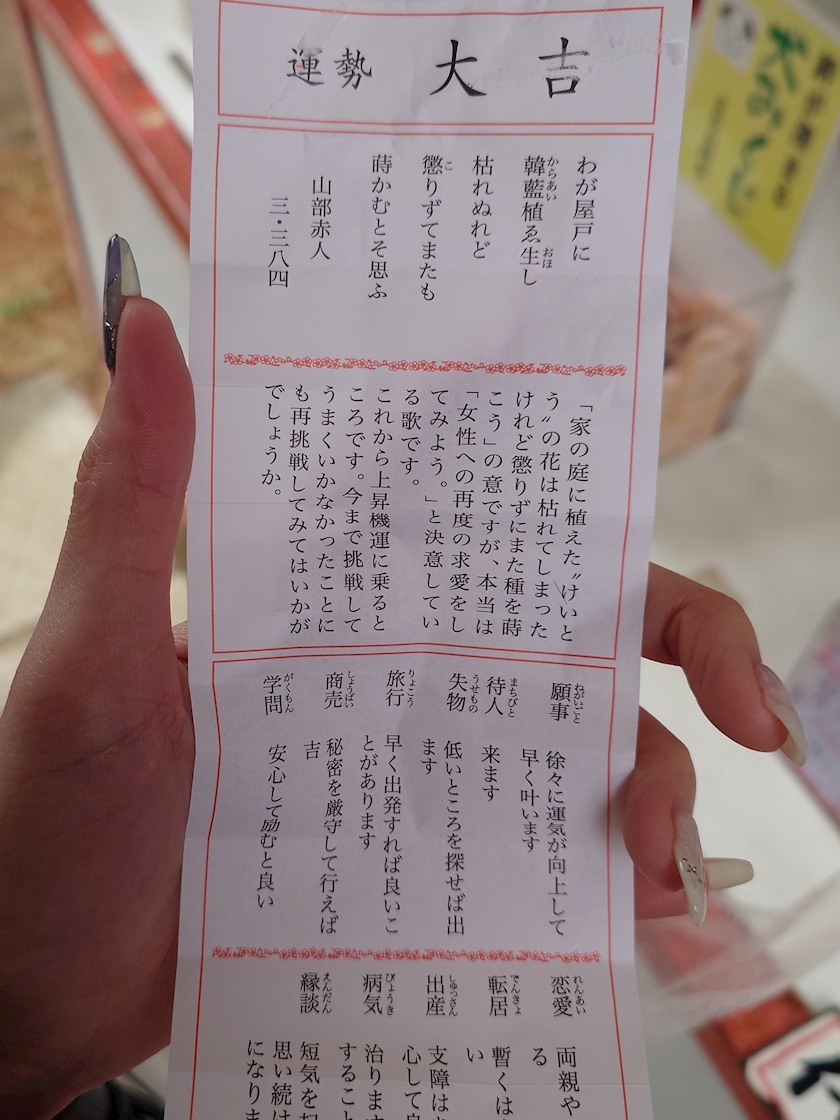 運勢 大吉
わが屋戸に
韓藍植ゑ生し
からあい
おほ
枯れぬれど
懲りずてまたも
こ
蒔かむとそ思ふ
山部赤人
三・三八四
「家の庭に植えた〝けいと
う〟の花は枯れてしまった
けれど懲りずにまた種を蒔
こう」の意ですが、本当は
「女性への再度の求愛をし
てみよう。」と決意してい
る歌です。
これから上昇機運に乗ると
ころです。今まで挑戦して
うまくいかなかったことに
も再挑戦してみてはいかが
でしょうか。
願事
ねがいごと
徐々に運気が向上して
早く叶います
待人
まちびと
来ます
失物
うせもの
低いところを探せば出
ます
旅行
りょこう
早く出発すれば良いこ
とがあります
商売
しょうばい
秘密を厳守して行えば
吉
学問
がくもん
安心して励むと良い
恋愛
れんあい
両親や
る
転居
てんきょ
暫くは
い
出産
しゅっさん
支障は
心して
病気
びょうき
治ります
すること
縁談
えんだん
短気を
思い続け
になりま